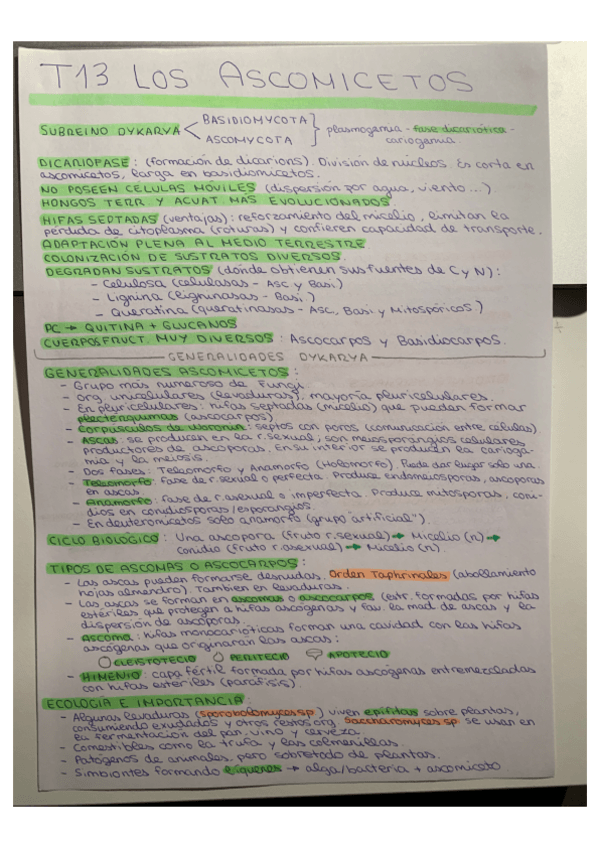 T13 LOS ASCOMICETOS
SUBREINO DYKARYA < BASIDIOMYCOTA
ASCOMYCOTA } plasmogamia - fase dicariótica - cariogamia.
DICARIOFASE: (formación de dicarions). División de núcleos. Es corta en
ascomicetos, larga en basidiomicetos.
NO POSEEN CELULAS MÓVILES (dispersión por agua, viento...).
HONGOS TERR Y ACUAT MAS EVOLUCIONADOS.
HIFAS SEPTADAS (ventajas): reforzamiento del micelio, limitan la
pérdida de citoplasma (roturas) y confieren capacidad de transporte.
ADAPTACIÓN PLENA AL MEDIO TERRESTRE
COLONIZACIÓN DE SUSTRATOS DIVERSOS.
DEGRADAN SUSTRATOS (donde obtienen sus fuentes de C y N):
- Celulosa (celulasas - Asc y Basi)
- Lignina (ligninasas - Basi)
- Queratina (queratinasas - Asc, Basi y Mitospóricos)
PC → QUITINA + GLUCANOS
CUERPOS FRUCT. MUY DIVERSOS: Ascocarpos y Basidiocarpos.
GENERALIDADES DYKARYA
GENERALIDADES ASCOMICETOS:
- Grupo más numeroso de Fungi.
- Org. unicelulares (levaduras), mayoría pluricelulares.
- En pluricelulares: hifas septadas (micelio) que pueden formar
plecténquimas (ascocarpos)
- Corpúsculos de Woronin: septos con poros (comunicación entre células).
- Ascas: se producen en la r.sexual, son meiosporangios celulares
productores de ascosporas. En su interior se producen la carioga-
mia y la meiosis.
- Dos fases: Teleomorfo y Anamorfo (Holomorfo). Puede dar lugar solo una.
- Teleomorfo: fase de r.sexual o perfecta. Produce endomeiosporas, ascosporas
en ascas.
- Anamorfo: fase de r.asexual o imperfecta. Produce mitosporas, coni-
dios en conidiosporas/esporangios.
- En deuteromicetos solo anamorfo (grupo "artificial").
CICLO BIOLÓGICO: Una ascospora (fruto r.sexual) → Micelio (n) →
conidio (fruto r.asexual) → Micelio (n).
TIPOS DE ASCOMAS O ASCOCARPOS:
- Las ascas pueden formarse desnudas. Orden Taphrinales (abollamiento
hojas almendro). También en levaduras.
- Las ascas se forman en ascomas o ascocarpos (estr. formadas por hifas
estériles que protegen a hifas ascógenas y fav. la mad de ascas y la
dispersión de ascosporas.
- Ascoma: hifas monocarióticas forman una cavidad con las hifas
ascógenas que originaran las ascas:
CLEISTOTECIO PERITECIO APOTECIO
- HIMENIO: capa fértil formada por hifas ascógenas entremezcladas
con hifas estériles (paráfisis).
ECOLOGIA E IMPORTANCIA:
- Algunas levaduras (Sporobolomyces sp) viven epífitas sobre plantas,
consumiendo exudados y otros restos org. Saccharomyces sp se usan en
la fermentación del pan, vino y cerveza.
- Comestibles como la trufa y las colmenillas.
- Patógenos de animales, pero sobretodo de plantas.
- Simbiontes formando líquenes → alga/bacteria + ascomiceto